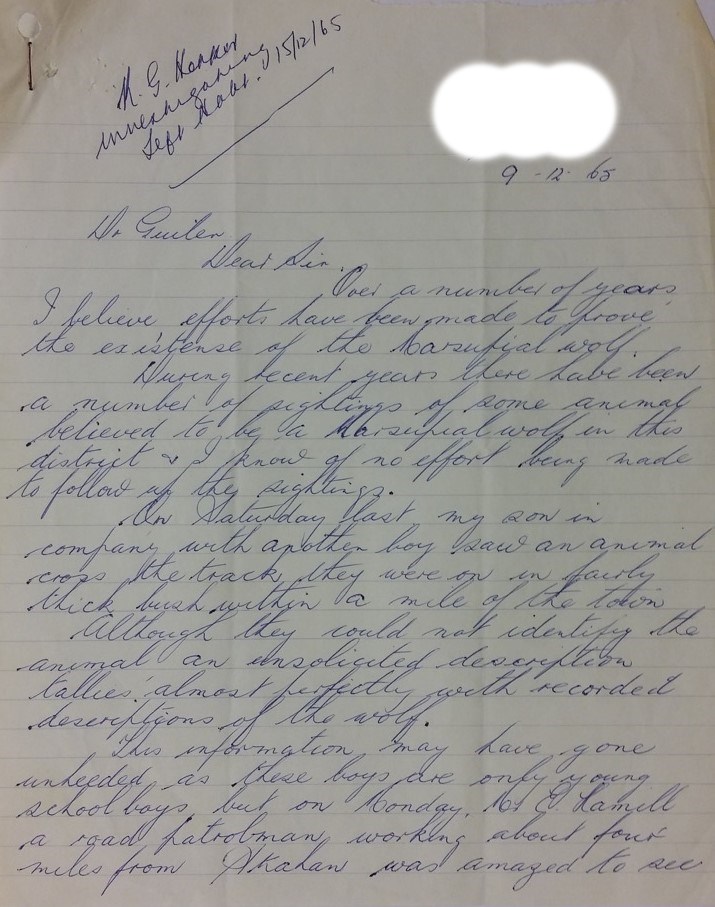 investigating
15/12/65
9-12-65
Dr Guiler
Dear Sir.
Over a number of years
I believe efforts have been made to prove
the existense of the Marsupial wolf.
During recent years there have been
a number of sightings of some animal
believed to be a Marsupial wolf in this
district & I know of no effort being made
to follow up the sightings.
On Saturday last my son in
company with another boy saw an animal
cross the track they were on in fairly
thick bush within a mile of the town
Although they could not identify the
animal an unsolicited description
tallies almost perfectly with recorded
descriptions of the wolf.
This information may have gone
unheeded as these boys are only young
school boys, but on Monday, Mr E.
a road patrolman, working about four
miles from was amazed to see